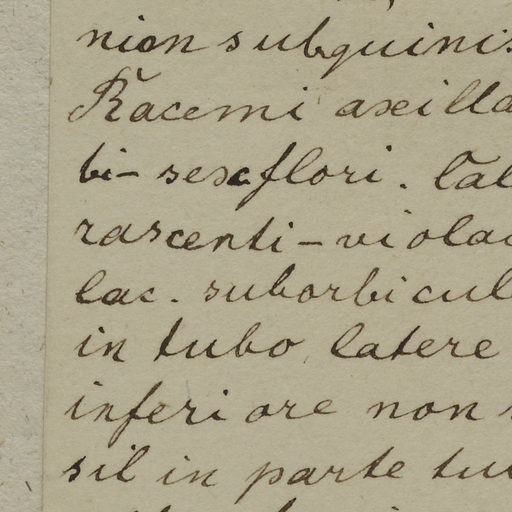 nion subquinis
Racemi axilla
bi-sexflori. Cal
rascenti-violac
lac. suborbicul
in tubo latere
inferiore non
sil in parte tu